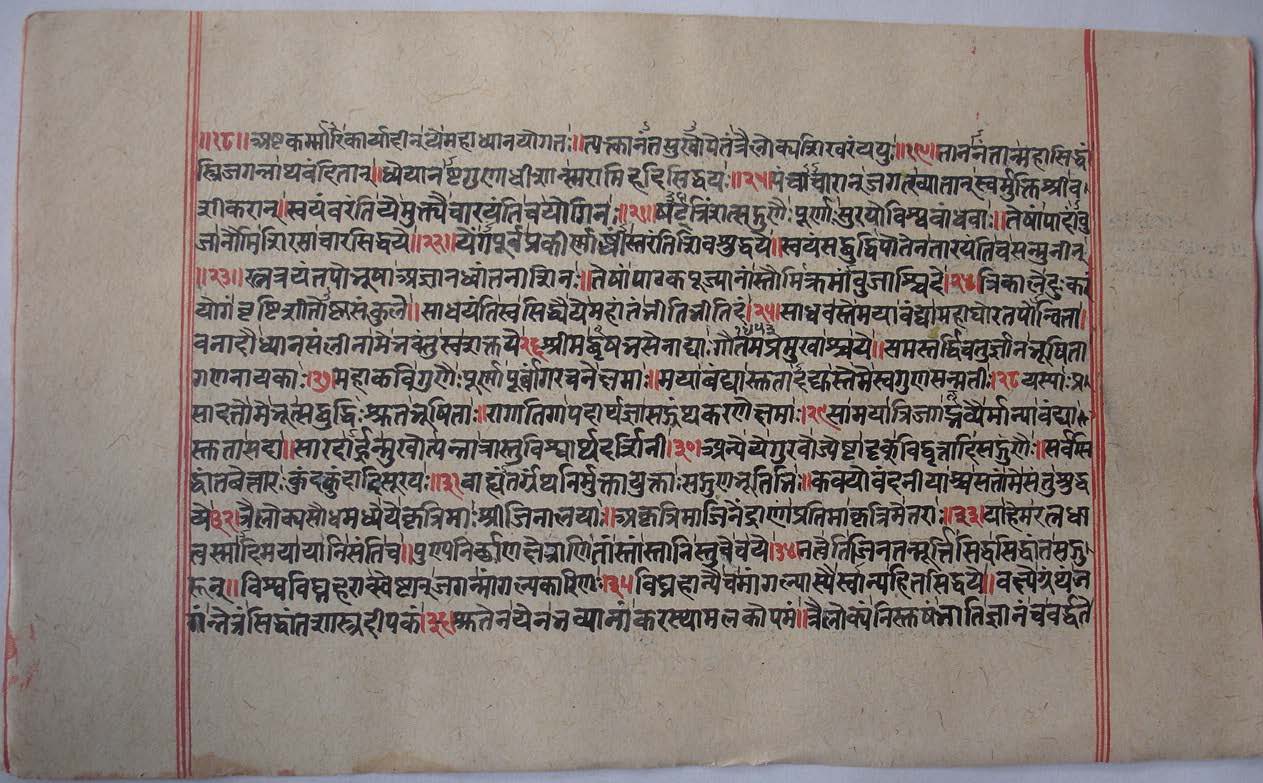 ॥१८॥ अष्टकर्मारिकार्यादीन् ये महाध्यानयोगतः॥ त्रैलोक्यशिखरं ययुः॥१९॥ तानन्तान्महासिद्धां
स्त्रिजगन्नाथवंदितान्॥ ध्येयानष्टगुणाधीशान् स्मरामि हृदि सिद्धये॥२०॥ पंचाचारान् जगत्ख्यातान् स्वर्मुक्तिश्रीव
शीकरान्॥ स्वयं चरंति ये मुक्त्यै चारयंति च योगिनः॥२१॥ षट्त्रिंशत्सद्गुणैः पूर्णाः सूरयो विश्वबांधवाः॥ तेषां पादांबु
जान्नौमि शिरसाचारसिद्धये॥२२॥ येंगपूर्वप्रकीर्णाब्धींस्तरंति शिवशुद्धये॥ स्वयं सद्बुद्धिपोतेन तारयंति च सन्मुनीन्
॥२३॥ रत्नत्रयतपोभूषा अज्ञानध्वांतनाशिनः॥ तेषां पाठकपूज्यानां स्तौमि क्रमांबुजाश्चिदे॥२४॥ त्रिकाले दुःकरं
योगं साधयंति स्वसिद्ध्यै ये
साधवस्ते मया वंद्या महाघोरतपोन्विताः
वनादौ ध्यानसंलीना मे भवंतु स्वशक्तये २६ श्रीमद्वृषभसेनाद्या गौतमप्रमुखाश्च ये॥ समस्तर्द्धिचतुर्ज्ञानभूषिता
गणनायकाः॥२७॥ महाकविगुणैः पूर्णाः पूर्वांगरचने क्षमाः॥ मया वंद्याः स्तुता स्ते मे स्वगुणसन्मतीः॥२८ यस्याः प्र
सादतो मेभूत्सद्बुद्धिः श्रुतभूषिता॥ रागातिगा पदार्थज्ञा सद्ग्रंथकरणे क्षमा॥२९ सा मया त्रिजगद्भव्यैर्मान्या वंद्या
स्तुता सदा॥ सारदार्हन्मुखोत्पन्नात्रास्तु विश्वार्थदर्शिनी॥३०॥ अन्ये ये गुरवो ज्येष्ठा सद्गुणैः॥ सर्वसि
द्धांतवेत्तारः कुंदकुंदादिसूरयः॥३१॥ बाह्यांतर्ग्रंथनिर्मुक्ता युक्ताः सद्गुणभूतिभिः॥ कवयो वंदनीया मे संतु शुद्ध
ये॥३२॥ त्रैलोक्यसौधमध्ये ये कृत्रिमाः श्रीजिनालयाः॥ अकृत्रिमा जिनेंद्राणां प्रतिमा कृत्रिमेतराः॥३३॥ या हेमरत्नधा
त्वस्मादिमया यानि संति च॥ पुण्यनिर्वाणक्षेत्राणि तांस्तांस्तानि स्तुवे च ये॥३४॥ नत्वेति जिनतन्मूर्त्तिसिद्धसिद्धांतसद्गु
रून्॥ विश्वविघ्नहरान् स्वेष्टान् जगन्मांगल्यकारिणः॥३५॥ विघ्नहान्यै च मांगल्याप्त्यै स्वान्यहितसिद्धये॥ वक्ष्ये ग्रंथं
सिद्धांतशास्त्रदीपकं॥३६॥ श्रुतेन येन भव्यानां करस्थामलकोपमं॥ त्रैलोक्यं निस्तुषं भाति ज्ञानं च वर्द्धते